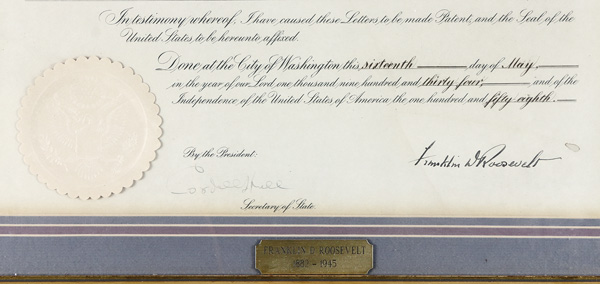 In testimony whereof, I have caused these Letters to be made Patent, and the Seal of the
United States to be hereunto affixed.
Done at the City of Washington this sixteenth day of May,
in the year of our Lord one thousand nine hundred and thirty four, and of the
Independence of the United States of America the one hundred and fifty-eighth.
By the President:
Franklin D Roosevelt
Cordell Hull
Secretary of State.
FRANKLIN D. ROOSEVELT
1882 - 1945